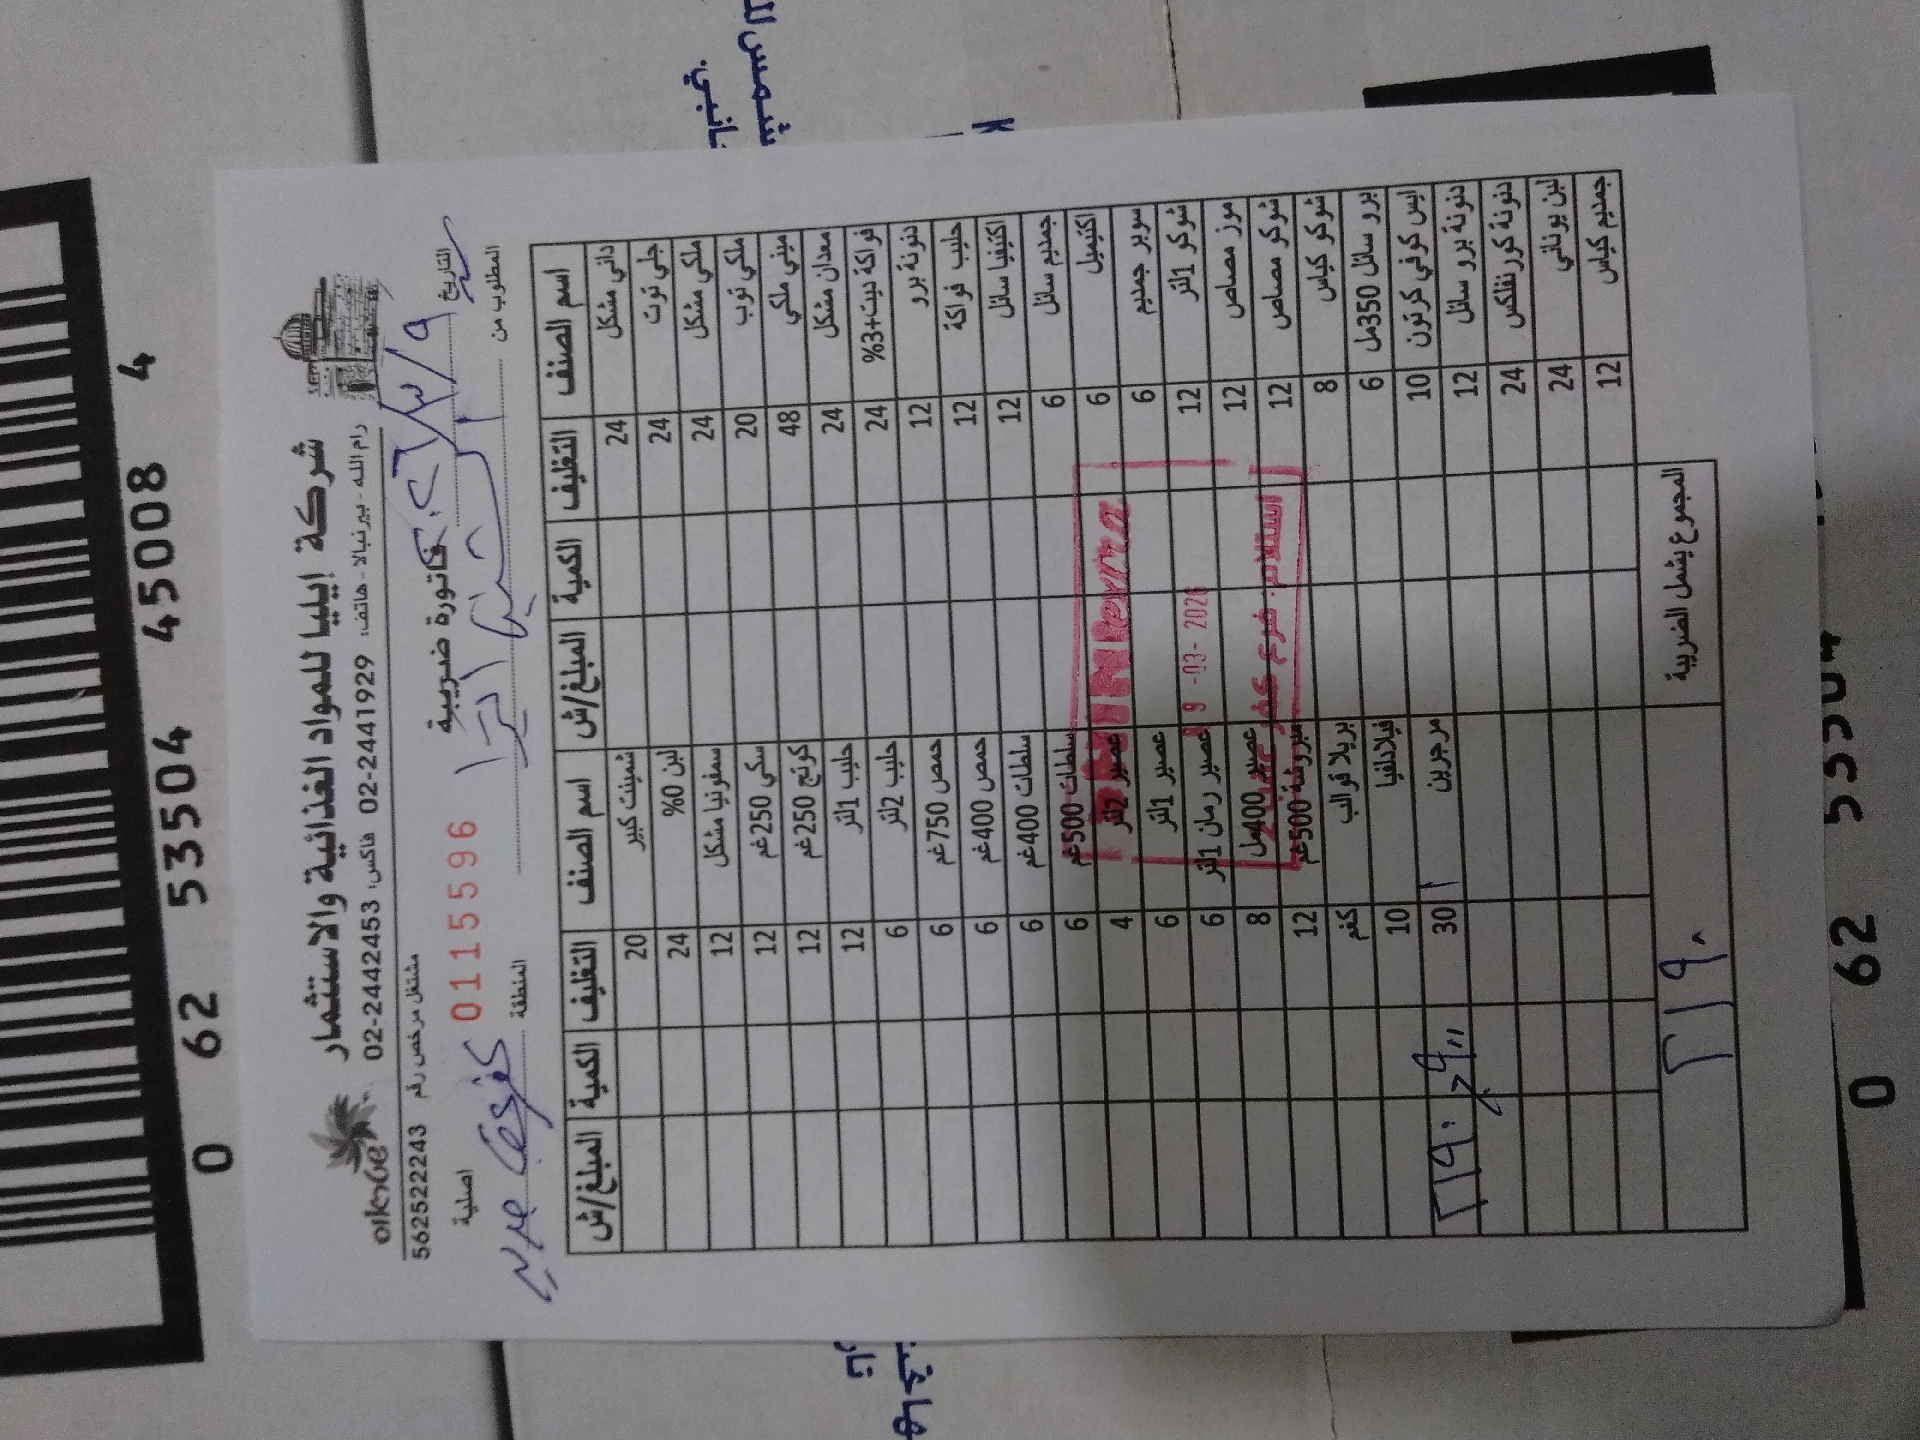 شركة ايليا للمواد الغذائية والاستثمار
رام الله - بيرنبالا - هاتف: 02-2441929 فاكس: 02-2442453
مشتغل مرخص رقم 562522243
التاريخ ٢٠٢٦/٣/٩
فاتورة ضريبية
0115596
اصلية
المطلوب من
المنطقة كفر عقب
اسم الصنف التغليف الكمية المبلغ/ش اسم الصنف التغليف الكمية المبلغ/ش
داني مشكل 24 شمينت كبير 20
جلي توت 24 لبن 0% 24
ملكي مشكل 24 سمفونيا مشكل 12
ملكي توب 20 سكي 250غم 12
ميني ملكي 48 كوتج 250غم 12
معدان مشكل 24 حليب 1لتر 12
فواكة نيت+3% 24 حليب 2لتر 6
دنونة برو 12 حمص 750غم 6
حليب فواكة 12 حمص 400غم 6
اكتيفيا سائل 12 سلطات 400غم 6
جمديم سائل 6 سلطات 500غم 6
اكتيميل 6 عصير 2لتر 4
سوبر جمديم 6 عصير 1لتر 6
شوكو 1لتر 12 عصير رمان 1لتر 6
موز مصاص 12 عصير 400مل 8
شوكو مصاص 12 مبروشة 500غم 12
شوكو كياس 8 بريلا قوالب كغم
برو سائل 350مل 6 فيلادلفيا 10
ايس كوفي كرتون 10 مرجرين 30 ١
دنونة برو سائل 12
دنونة كورنفلكس 24
لبن يوناني 24
جمديم كياس 12
المجموع يشمل الضريبة
9 -03- 202
استلام فرع كفر عقب
0 62 53504 45008 4
0 62